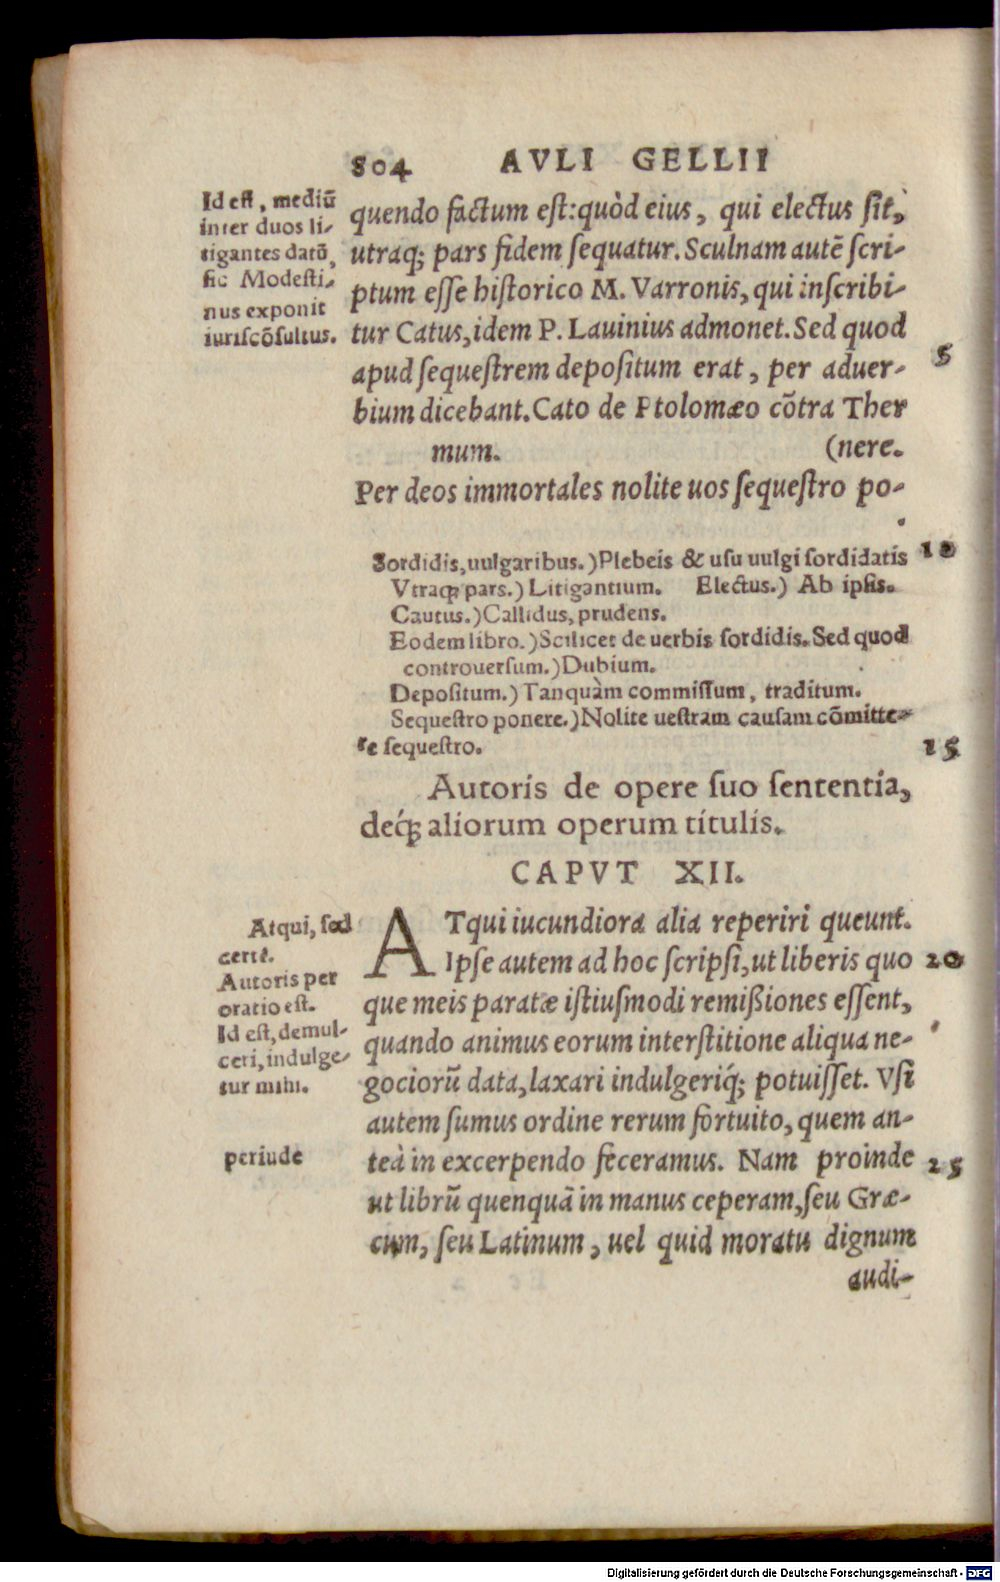 804 AVLI GELLII
Id est, mediū
inter duos li-
tigantes datū,
sic Modesti-
nus exponit
iuriscōsultus.
quendo factum est: quòd eius, qui electus sit,
utraq; pars fidem sequatur. Sculnam autē scri-
ptum esse historico M. Varronis, qui inscribi-
tur Catus, idem P. Lauinius admonet. Sed quod
apud sequestrem depositum erat, per aduer- 5
bium dicebant. Cato de Ptolomæo cōtra Ther
mum. (nere.
Per deos immortales nolite uos sequestro po-
Sordidis, uulgaribus.) Plebeis & usu uulgi sordidatis 10
Vtraq; pars.) Litigantium. Electus.) Ab ipsis.
Cautus.) Callidus, prudens.
Eodem libro.) Scilicet de uerbis sordidis. Sed quod
controuersum.) Dubium.
Depositum.) Tanquàm commissum, traditum.
Sequestro ponere.) Nolite uestram causam cōmitte-
re sequestro. 15
Autoris de opere suo sententia,
deq́; aliorum operum titulis.
CAPVT XII.
Atqui, sed
certè.
Autoris per
oratio est.
Id est, demul-
ceri, indulge-
tur mihi.
periude
ATqui iucundiora alia reperiri queunt.
Ipse autem ad hoc scripsi, ut liberis quo 20
que meis paratæ istiusmodi remißiones essent,
quando animus eorum interstitione aliqua ne-
gociorū data, laxari indulgeriq́; potuisset. Vsi
autem sumus ordine rerum fortuito, quem an-
teà in excerpendo feceramus. Nam proinde 25
ut librū quenquā in manus ceperam, seu Græ-
cum, seu Latinum, uel quid moratu dignum
audi-
Digitalisierung gefördert durch die Deutsche Forschungsgemeinschaft - DFG